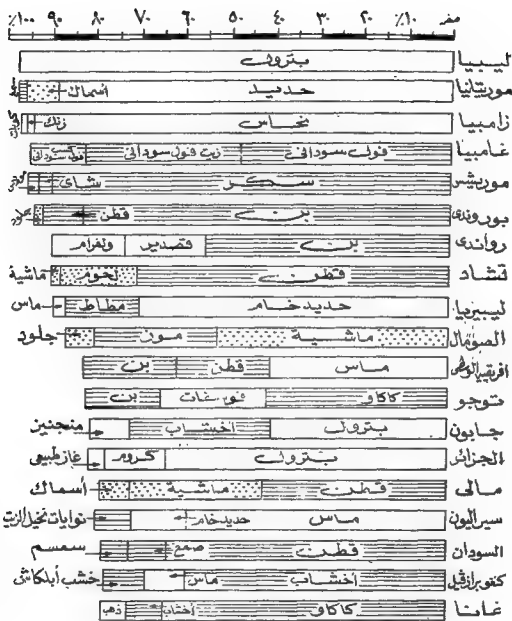 ٪١٠٠ ٩٠ ٨٠ ٧٠ ٦٠ ٥٠ ٤٠ ٣٠ ٢٠ ٪١٠ صفر
ليبيا بترول
موريتانيا حديد أسماك
زامبيا نحاس زنك
غامبيا فول سودانى زيت فول سودانى
موريشس سكر شاى
بوروندى بن قطن
رواندى بن قصدير ولفرام
تشاد قطن لحوم ماشية
ليبيريا حديد خام مطاط ماس
الصومال ماشية موز جلود
افريقيا الوسطى ماس قطن بن
توجو كاكاو فوسفات بن
جابون بترول أخشاب منجنيز
الجزائر بترول كروم غاز طبيعى
مالى قطن ماشية أسماك
سيراليون ماس حديد خام نوايات نخيل الزيت
السودان قطن صمغ سمسم
كنغو برازفيل أخشاب ماس خشب أبلكاش
غانا كاكاو أخشاب ذهب